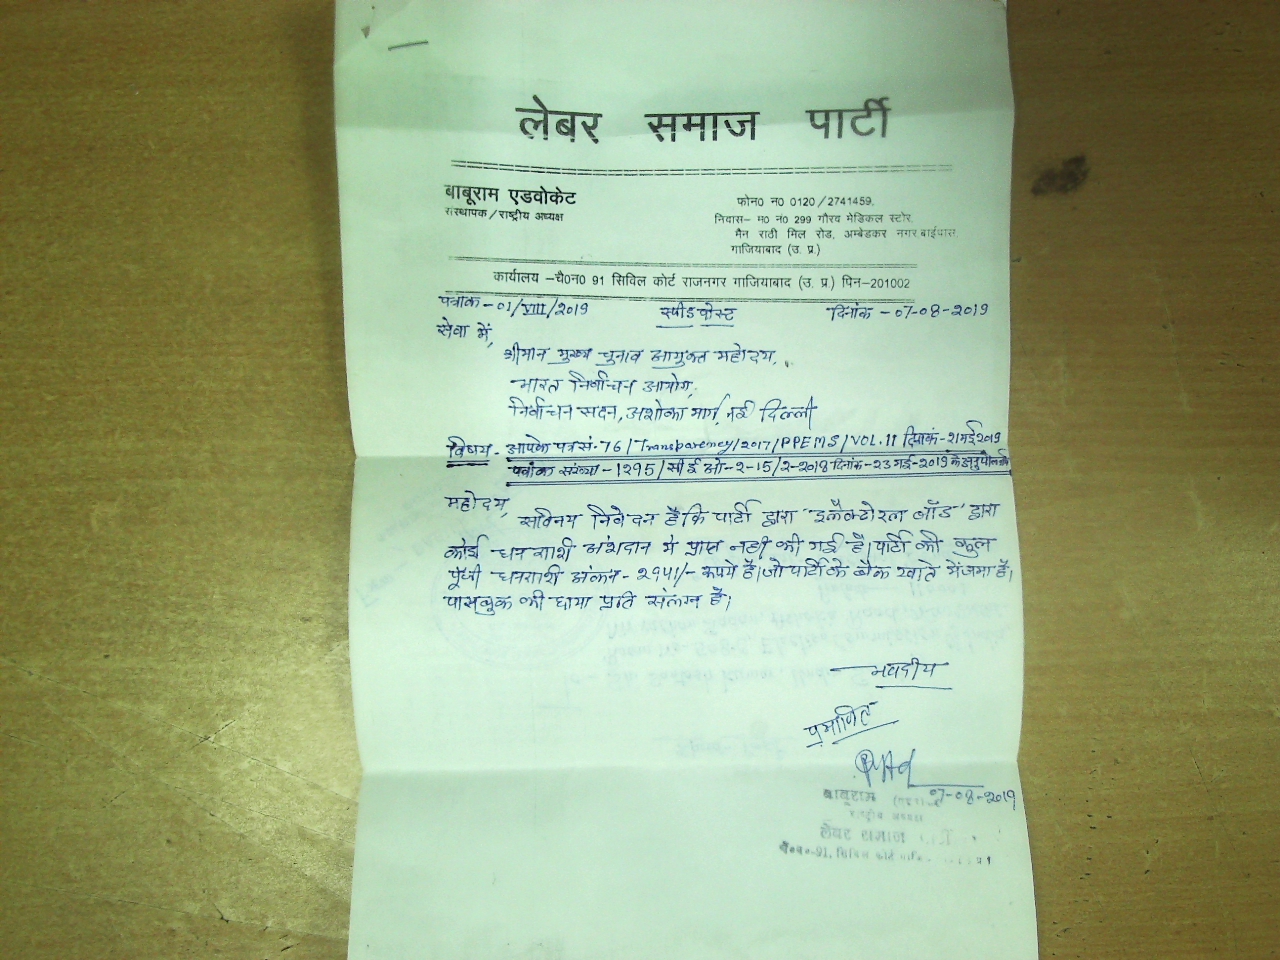 लेबर समाज पार्टी
बाबूराम एडवोकेट
संस्थापक/राष्ट्रीय अध्यक्ष
फोन0 न0 0120/2741459,
निवास- म0 नं0 299 गौरव मेडिकल स्टोर,
मैन राठी मिल रोड, अम्बेडकर नगर,बाईपास,
गाजियाबाद (उ. प्र.)
कार्यालय -चै0न0 91 सिविल कोर्ट राजनगर गाजियाबाद (उ. प्र.) पिन-201002
पत्रांक-01/VIII/2019 स्पीड पोस्ट दिनांक -07-08-2019
सेवा में,
श्रीमान मुख्य चुनाव आयुक्त महोदय,
भारत निर्वाचन आयोग,
निर्वाचन सदन, अशोका मार्ग, नई दिल्ली
विषय- आपके पत्र सं. 76/Transparency/2017/PPEMS/VOL.II दिनांक-21मई2019
पत्रांक संख्या-1295/सी ई ओ-2-15/2-2018 दिनांक-23मई-2019 के
महोदय,
सविनय निवेदन है कि पार्टी द्वारा 'इलैक्टोरल बॉंड' द्वारा
कोई धनराशी अंशदान में प्राप्त नहीं की गई है। पार्टी की कुल
पूंजी धनराशी अंकन-2941/- रूपये है। जो पार्टी के बैंक खाते में जमा है।
पासबुक की छाया प्रति संलग्न है।
भवदीय
प्रमाणित
07-08-2019
बाबूराम
राष्ट्रीय अध्यक्ष
लेबर समाज
चै0न0-91, सिविल कोर्ट